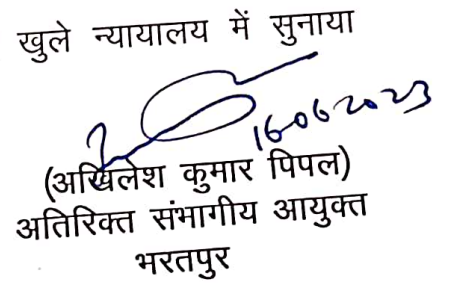 खुले न्यायालय में सुनाया
16-06-2023
(अखिलेश कुमार पिपल)
अतिरिक्त संभागीय आयुक्त
भरतपुर